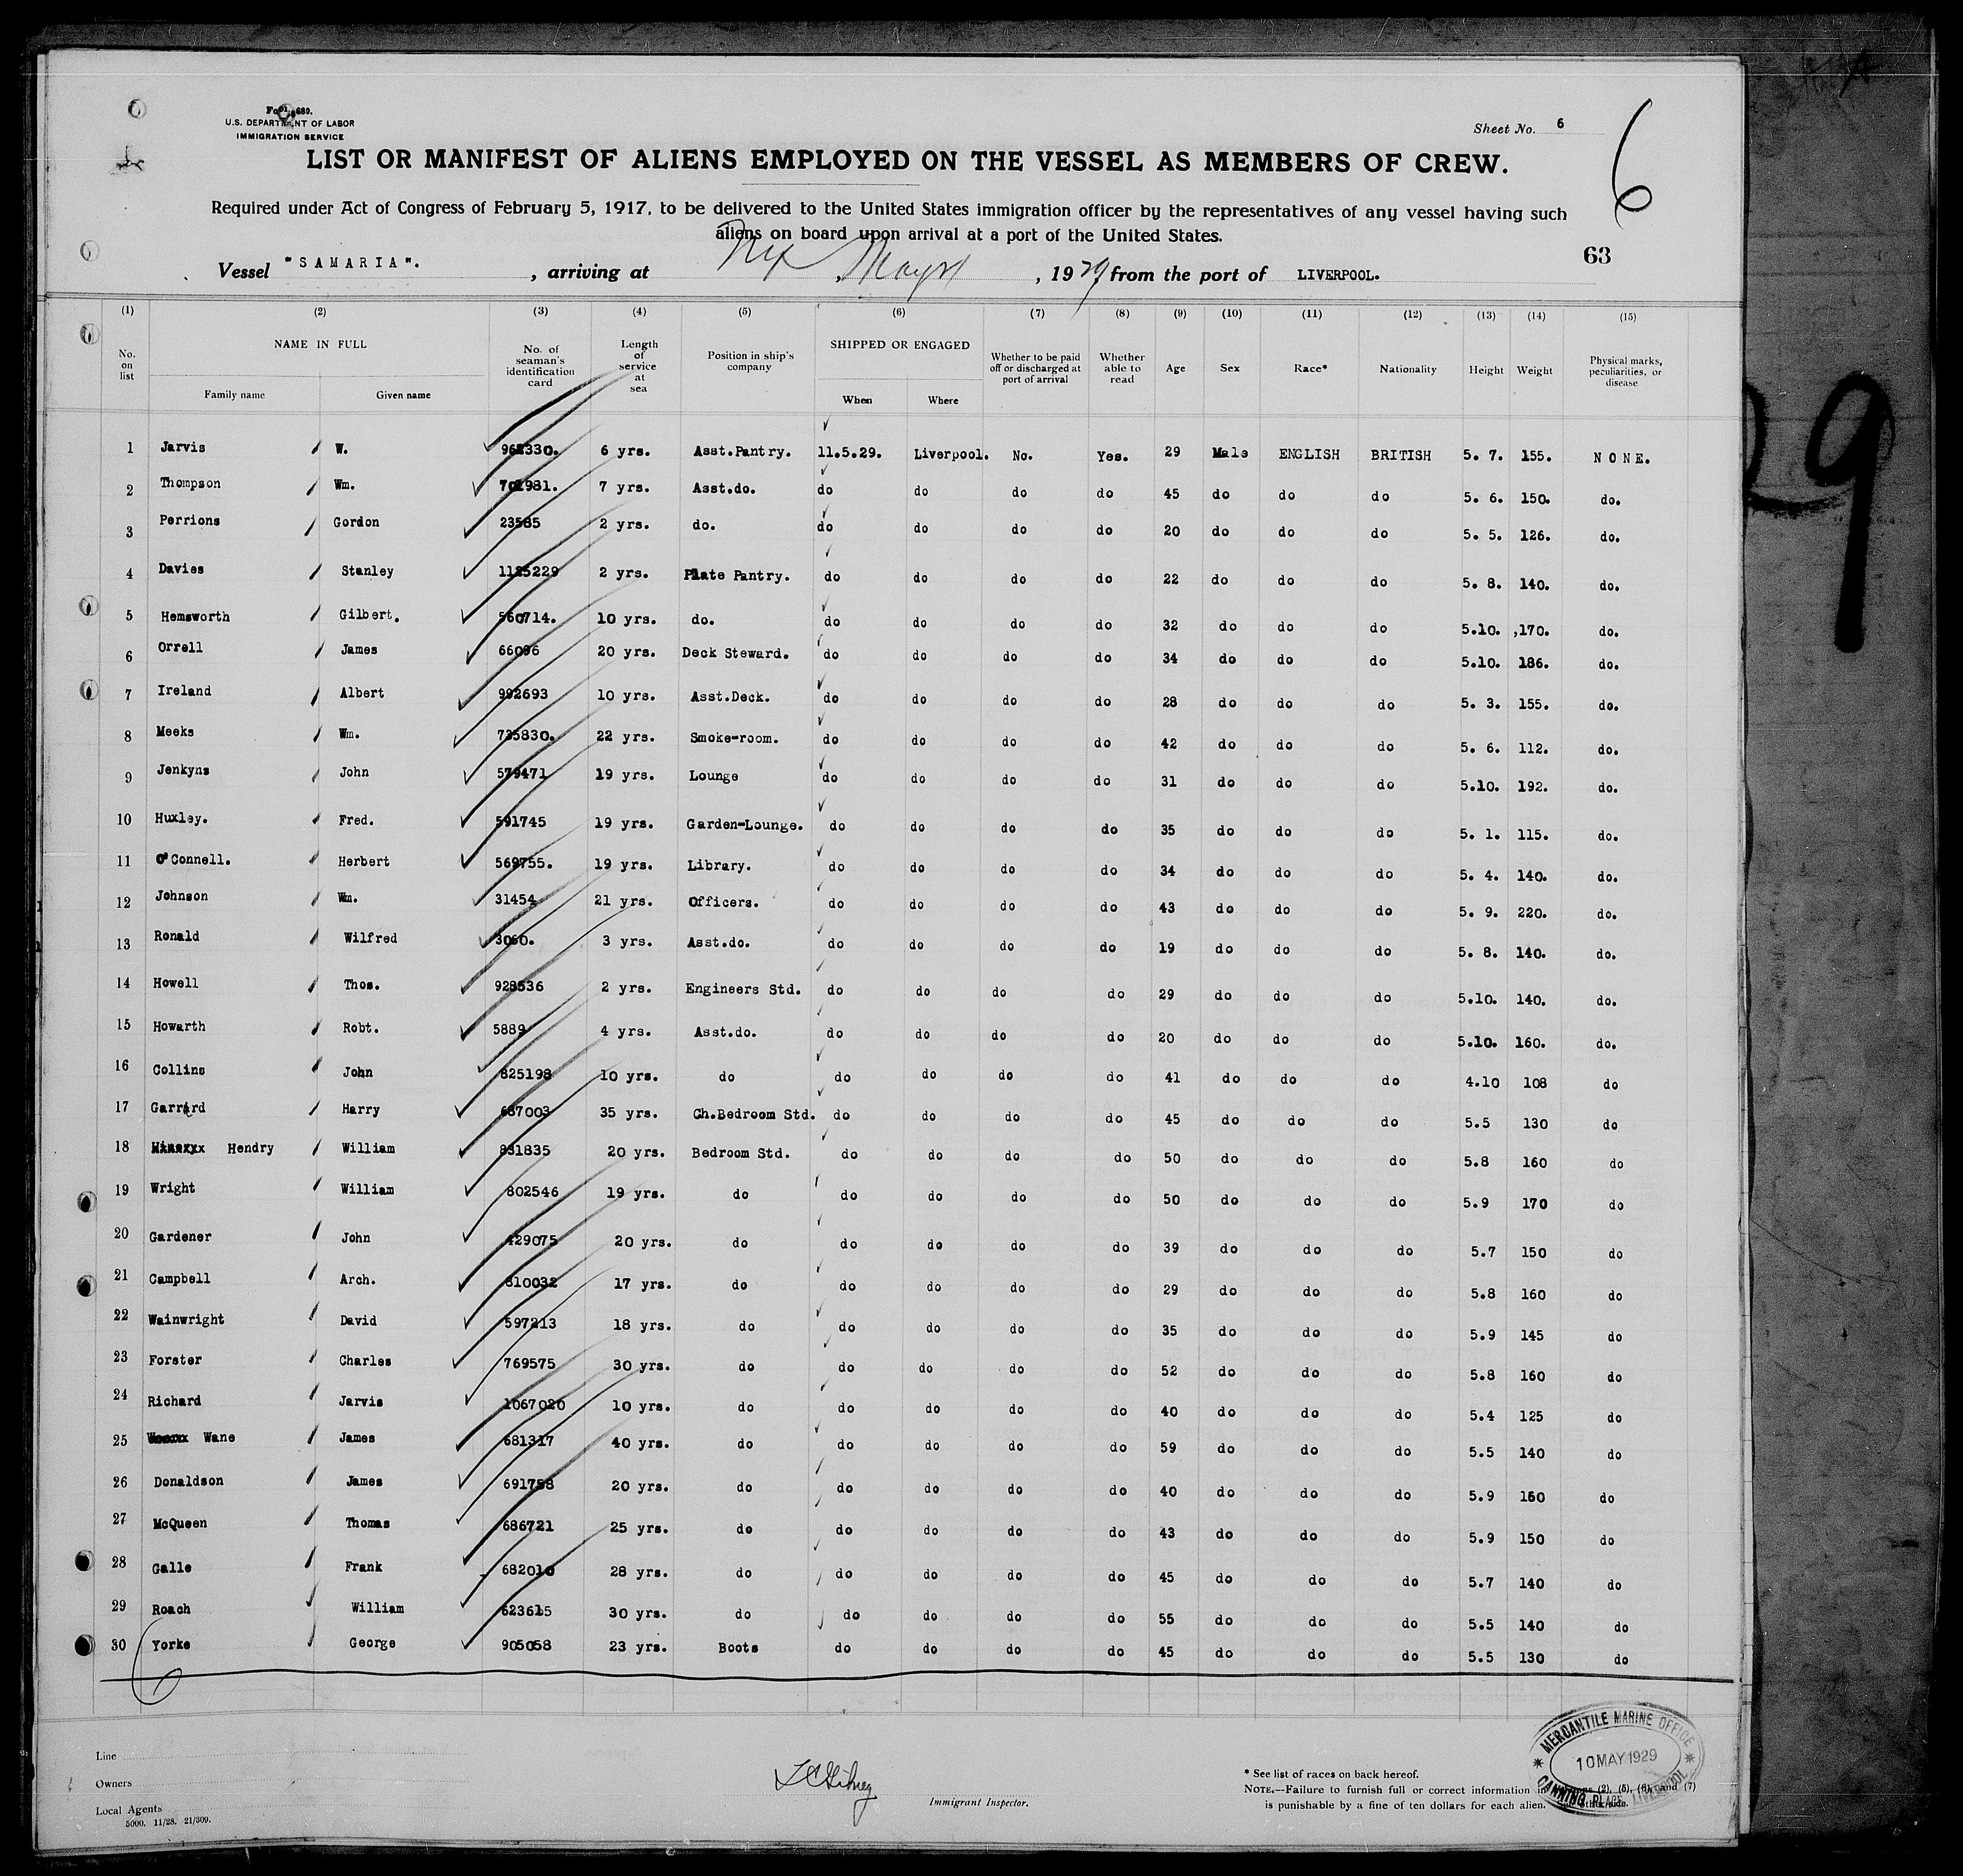 Form 680.
U.S. DEPARTMENT OF LABOR
IMMIGRATION SERVICE
Sheet No. 6
6
LIST OR MANIFEST OF ALIENS EMPLOYED ON THE VESSEL AS MEMBERS OF CREW.
Required under Act of Congress of February 5, 1917, to be delivered to the United States immigration officer by the representatives of any vessel having such
aliens on board upon arrival at a port of the United States.
63
Vessel "SAMARIA". , arriving at , 1929, from the port of LIVERPOOL.
(1) (2) (3) (4) (5) (6) (7) (8) (9) (10) (11) (12) (13) (14) (15)
No. on list NAME IN FULL Family name Given name No. of seaman's identification card Length of service at sea Position in ship's company SHIPPED OR ENGAGED When Where Whether to be paid off or discharged at port of arrival Whether able to read Age Sex Race* Nationality Height Weight Physical marks, peculiarities, or disease
1 Jarvis W. 968330. 6 yrs. Asst.Pantry. 11.5.29. Liverpool. No. Yes. 29 Male ENGLISH BRITISH 5. 7. 155. NONE.
2 Thompson Wm. 701981. 7 yrs. Asst.do. do do do do 45 do do do 5. 6. 150. do.
3 Perrions Gordon 23585 2 yrs. do. do do do do 20 do do do 5. 5. 126. do.
4 Davies Stanley 1125229 2 yrs. Plate Pantry. do do do do 22 do do do 5. 8. 140. do.
5 Hemsworth Gilbert. 560714. 10 yrs. do. do do do do 32 do do do 5.10. ,170. do.
6 Orrell James 66096 20 yrs. Deck Steward. do do do do 34 do do do 5.10. 186. do.
7 Ireland Albert 992693 10 yrs. Asst.Deck. do do do do 28 do do do 5. 3. 155. do.
8 Meeks Wm. 735830. 22 yrs. Smoke-room. do do do do 42 do do do 5. 6. 112. do.
9 Jenkyns John 579471 19 yrs. Lounge do do do do 31 do do do 5.10. 192. do.
10 Huxley. Fred. 591745 19 yrs. Garden-Lounge. do do do do 35 do do do 5. 1. 115. do.
11 O'Connell. Herbert 569755. 19 yrs. Library. do do do do 34 do do do 5. 4. 140. do.
12 Johnson Wm. 31454 21 yrs. Officers. do do do do 43 do do do 5. 9. 220. do.
13 Ronald Wilfred 3060. 3 yrs. Asst.do. do do do do 19 do do do 5. 8. 140. do.
14 Howell Thos. 928536 2 yrs. Engineers Std. do do do do 29 do do do 5.10. 140. do.
15 Howarth Robt. 5889 4 yrs. Asst.do. do do do do 20 do do do 5.10. 160. do.
16 Collins John 825198 10 yrs. do do do do do 41 do do do 4.10 108 do
17 Garrard Harry 687003 35 yrs. Ch.Bedroom Std. do do do do 45 do do do 5.5 130 do
18 Hendry William 831835 20 yrs. Bedroom Std. do do do do 50 do do do 5.8 160 do
19 Wright William 802546 19 yrs. do do do do do 50 do do do 5.9 170 do
20 Gardener John 429075 20 yrs. do do do do do 39 do do do 5.7 150 do
21 Campbell Arch. 810032 17 yrs. do do do do do 29 do do do 5.8 160 do
22 Wainwright David 597213 18 yrs. do do do do do 35 do do do 5.9 145 do
23 Forster Charles 769575 30 yrs. do do do do do 52 do do do 5.8 160 do
24 Richard Jarvis 1067020 10 yrs. do do do do do 40 do do do 5.4 125 do
25 Wane James 681317 40 yrs. do do do do do 59 do do do 5.5 140 do
26 Donaldson James 691758 20 yrs. do do do do do 40 do do do 5.9 150 do
27 McQueen Thomas 686721 25 yrs. do do do do do 43 do do do 5.9 150 do
28 Galle Frank 682010 28 yrs. do do do do do 45 do do do 5.7 140 do
29 Roach William 623615 30 yrs. do do do do do 55 do do do 5.5 140 do
30 Yorke George 905058 23 yrs. Boots do do do do 45 do do do 5.5 130 do
Line
Owners
Local Agents
5000. 11/28. 21/309.
Immigrant Inspector.
* See list of races on back hereof.
NOTE.—Failure to furnish full or correct information in columns (2), (5), (6), and (7)
is punishable by a fine of ten dollars for each alien.
MERCANTILE MARINE OFFICE
10 MAY 1929
CANNING PLACE LIVERPOOL